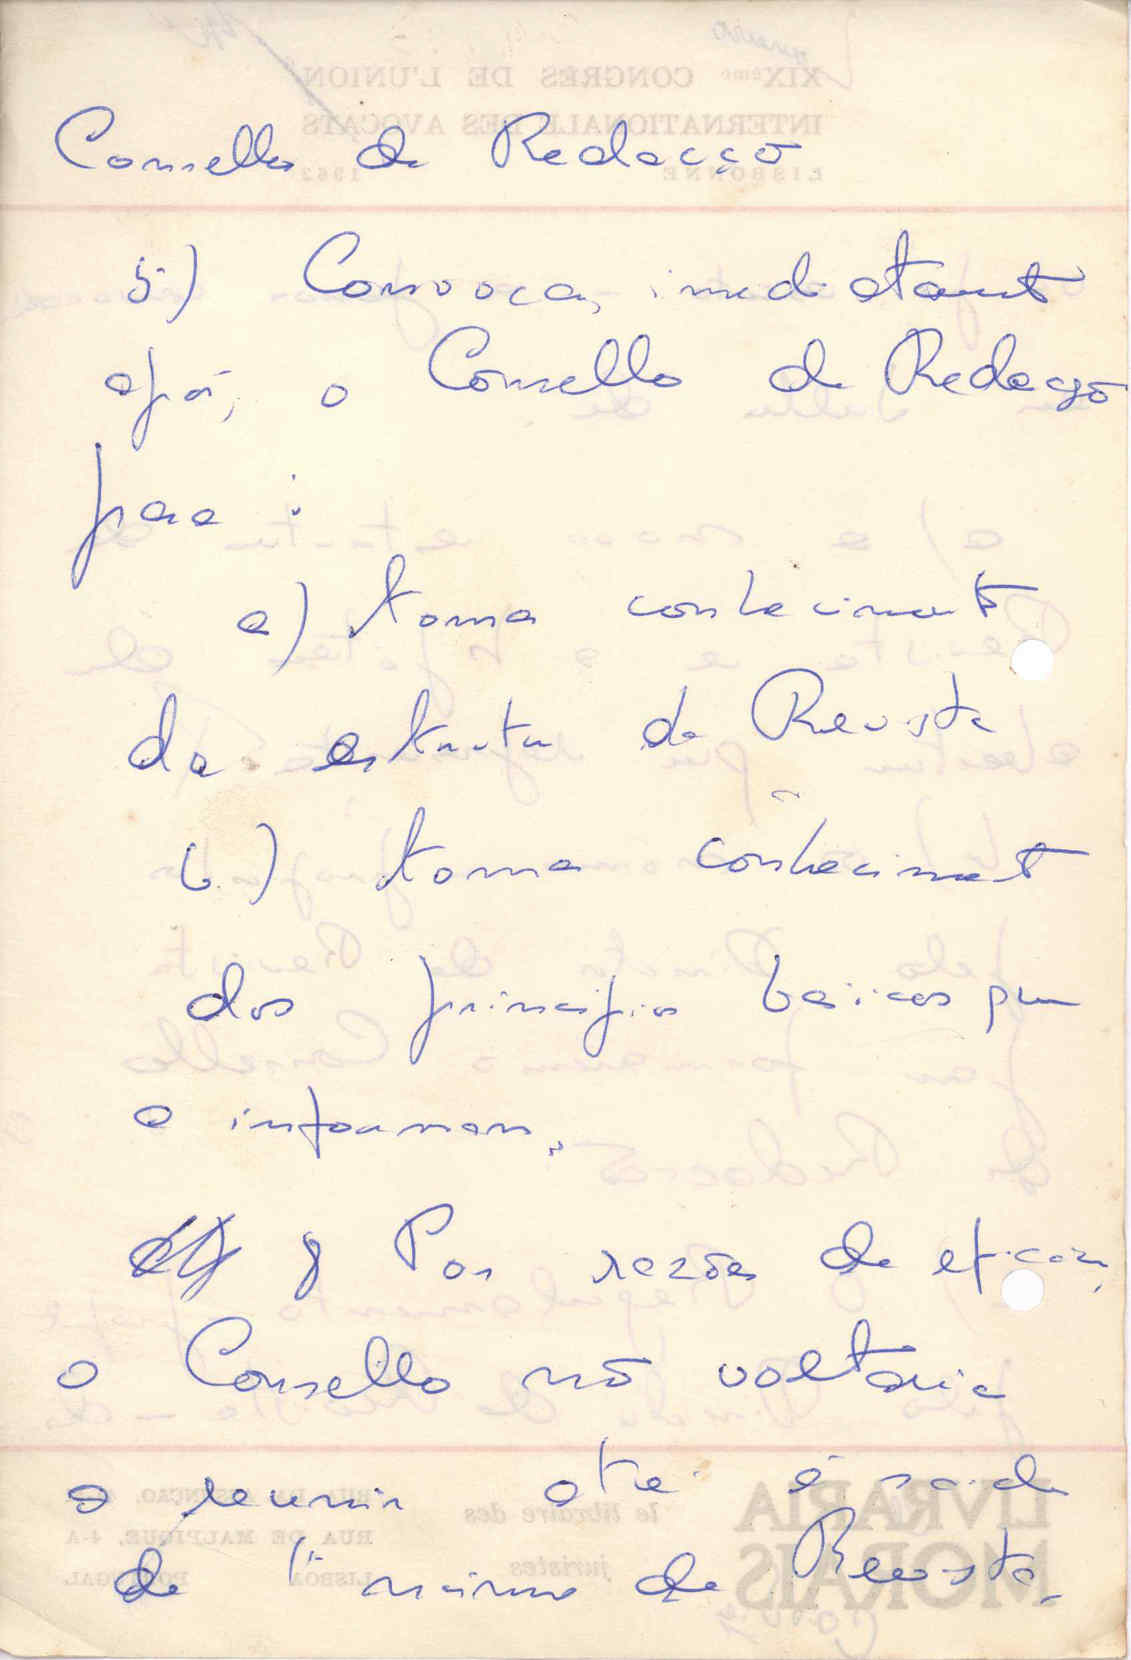 Conselho de Redacção
5) Convocar, imediatamente
após, o Conselho de Redacção
para :
a) tomar conhecimento
da estrutura da Revista
b) tomar conhecimento
dos princípios básicos que
a informam.
§ Por razões de eficácia,
o Conselho não voltaria
a reunir até à saída
do 1º número da Revista.